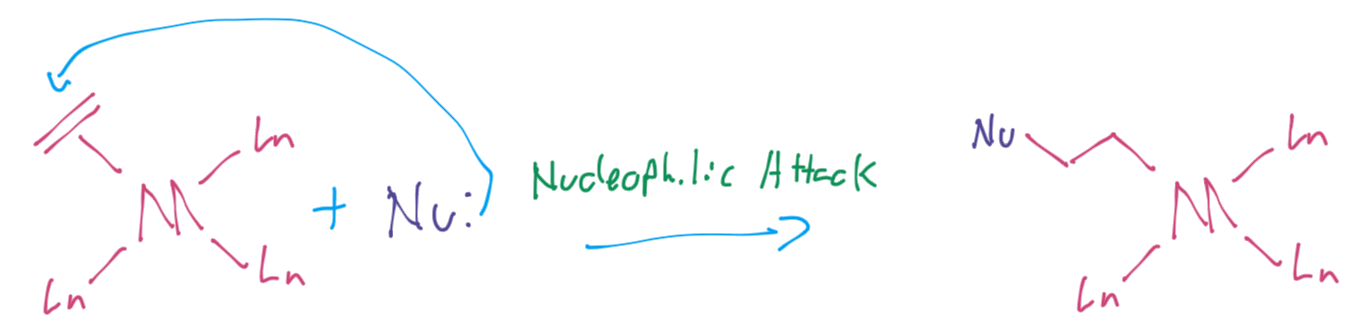 Ln
M
Ln
Ln
+ Nu:
Nucleophilic Attack
Nu
Ln
M
Ln
Ln